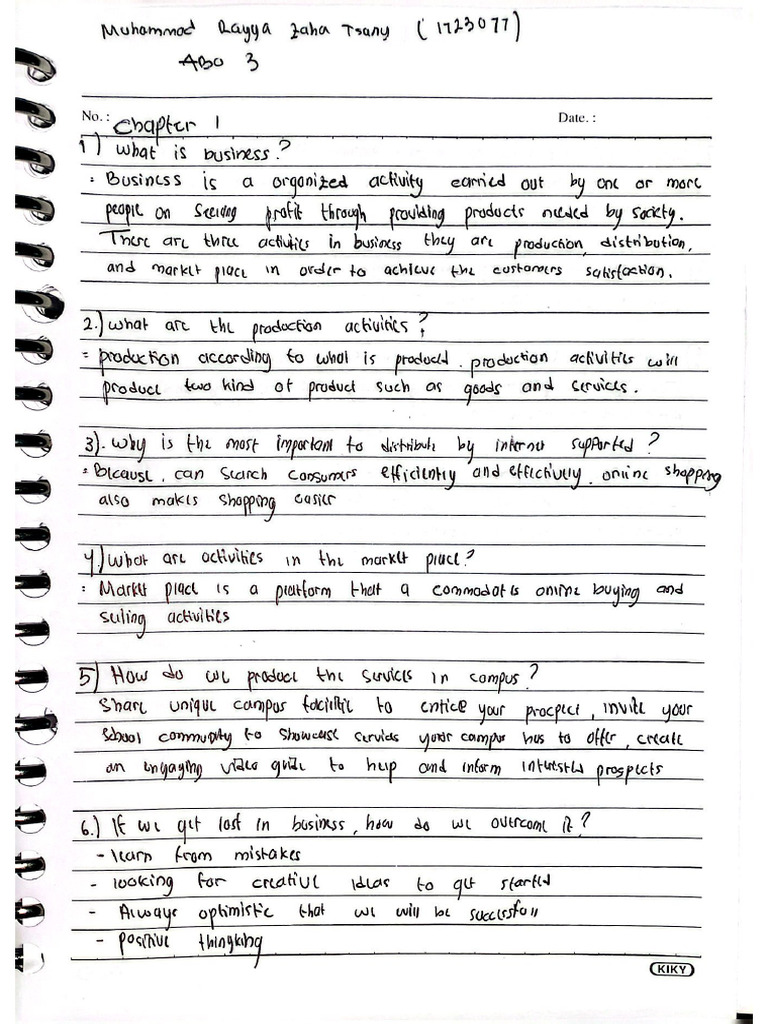 Muhammad Rayya Zaha Tsany (1723077)
ABO 3
No. : Chapter 1 Date. :
1) What is business?
: Business is a organized activity carried out by one or more
people on seeking profit through providing products needed by society.
There are three activities in business they are production, distribution,
and market place in order to achieve the customers satisfaction.
2.) What are the production activities?
= production according to what is produced. production activities will
produce two kind of product such as goods and services.
3). Why is the most important to distribute by internet supported?
= Because, can search consumers efficiently and effectively. online shopping
also makes shopping easier
4.) What are activities in the market place?
: Market place is a platform that a commodates online buying and
selling activities
5) How do we produce the services in campus?
Share unique campus facilitie to entice your procpect, invite your
school community to showcase services your campus has to offer, create
an engaging video guide to help and inform interested prospects
6.) If we get lost in business, how do we overcome it?
- learn from mistakes
- looking for creative ideas to get started
- Always optimistic that we will be successfull
- positive thingking
KIKY